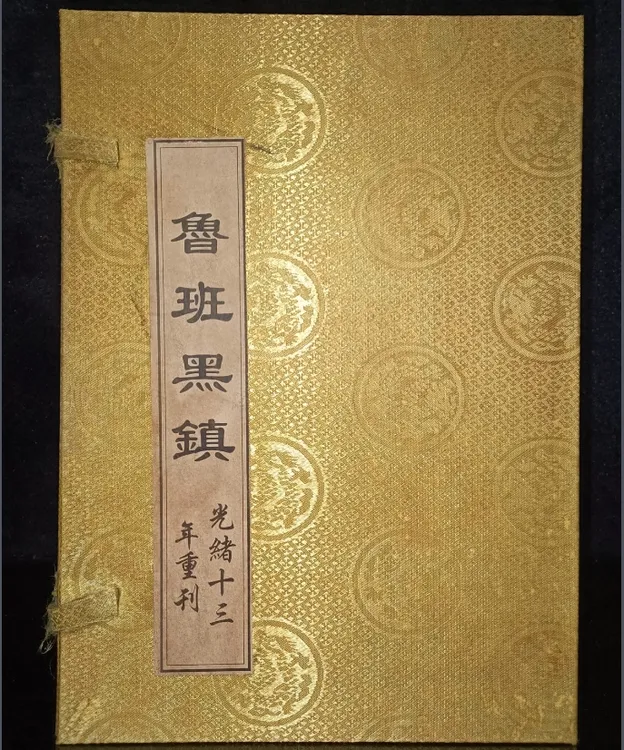 魯班黑鎮
光緒十三
年重刊